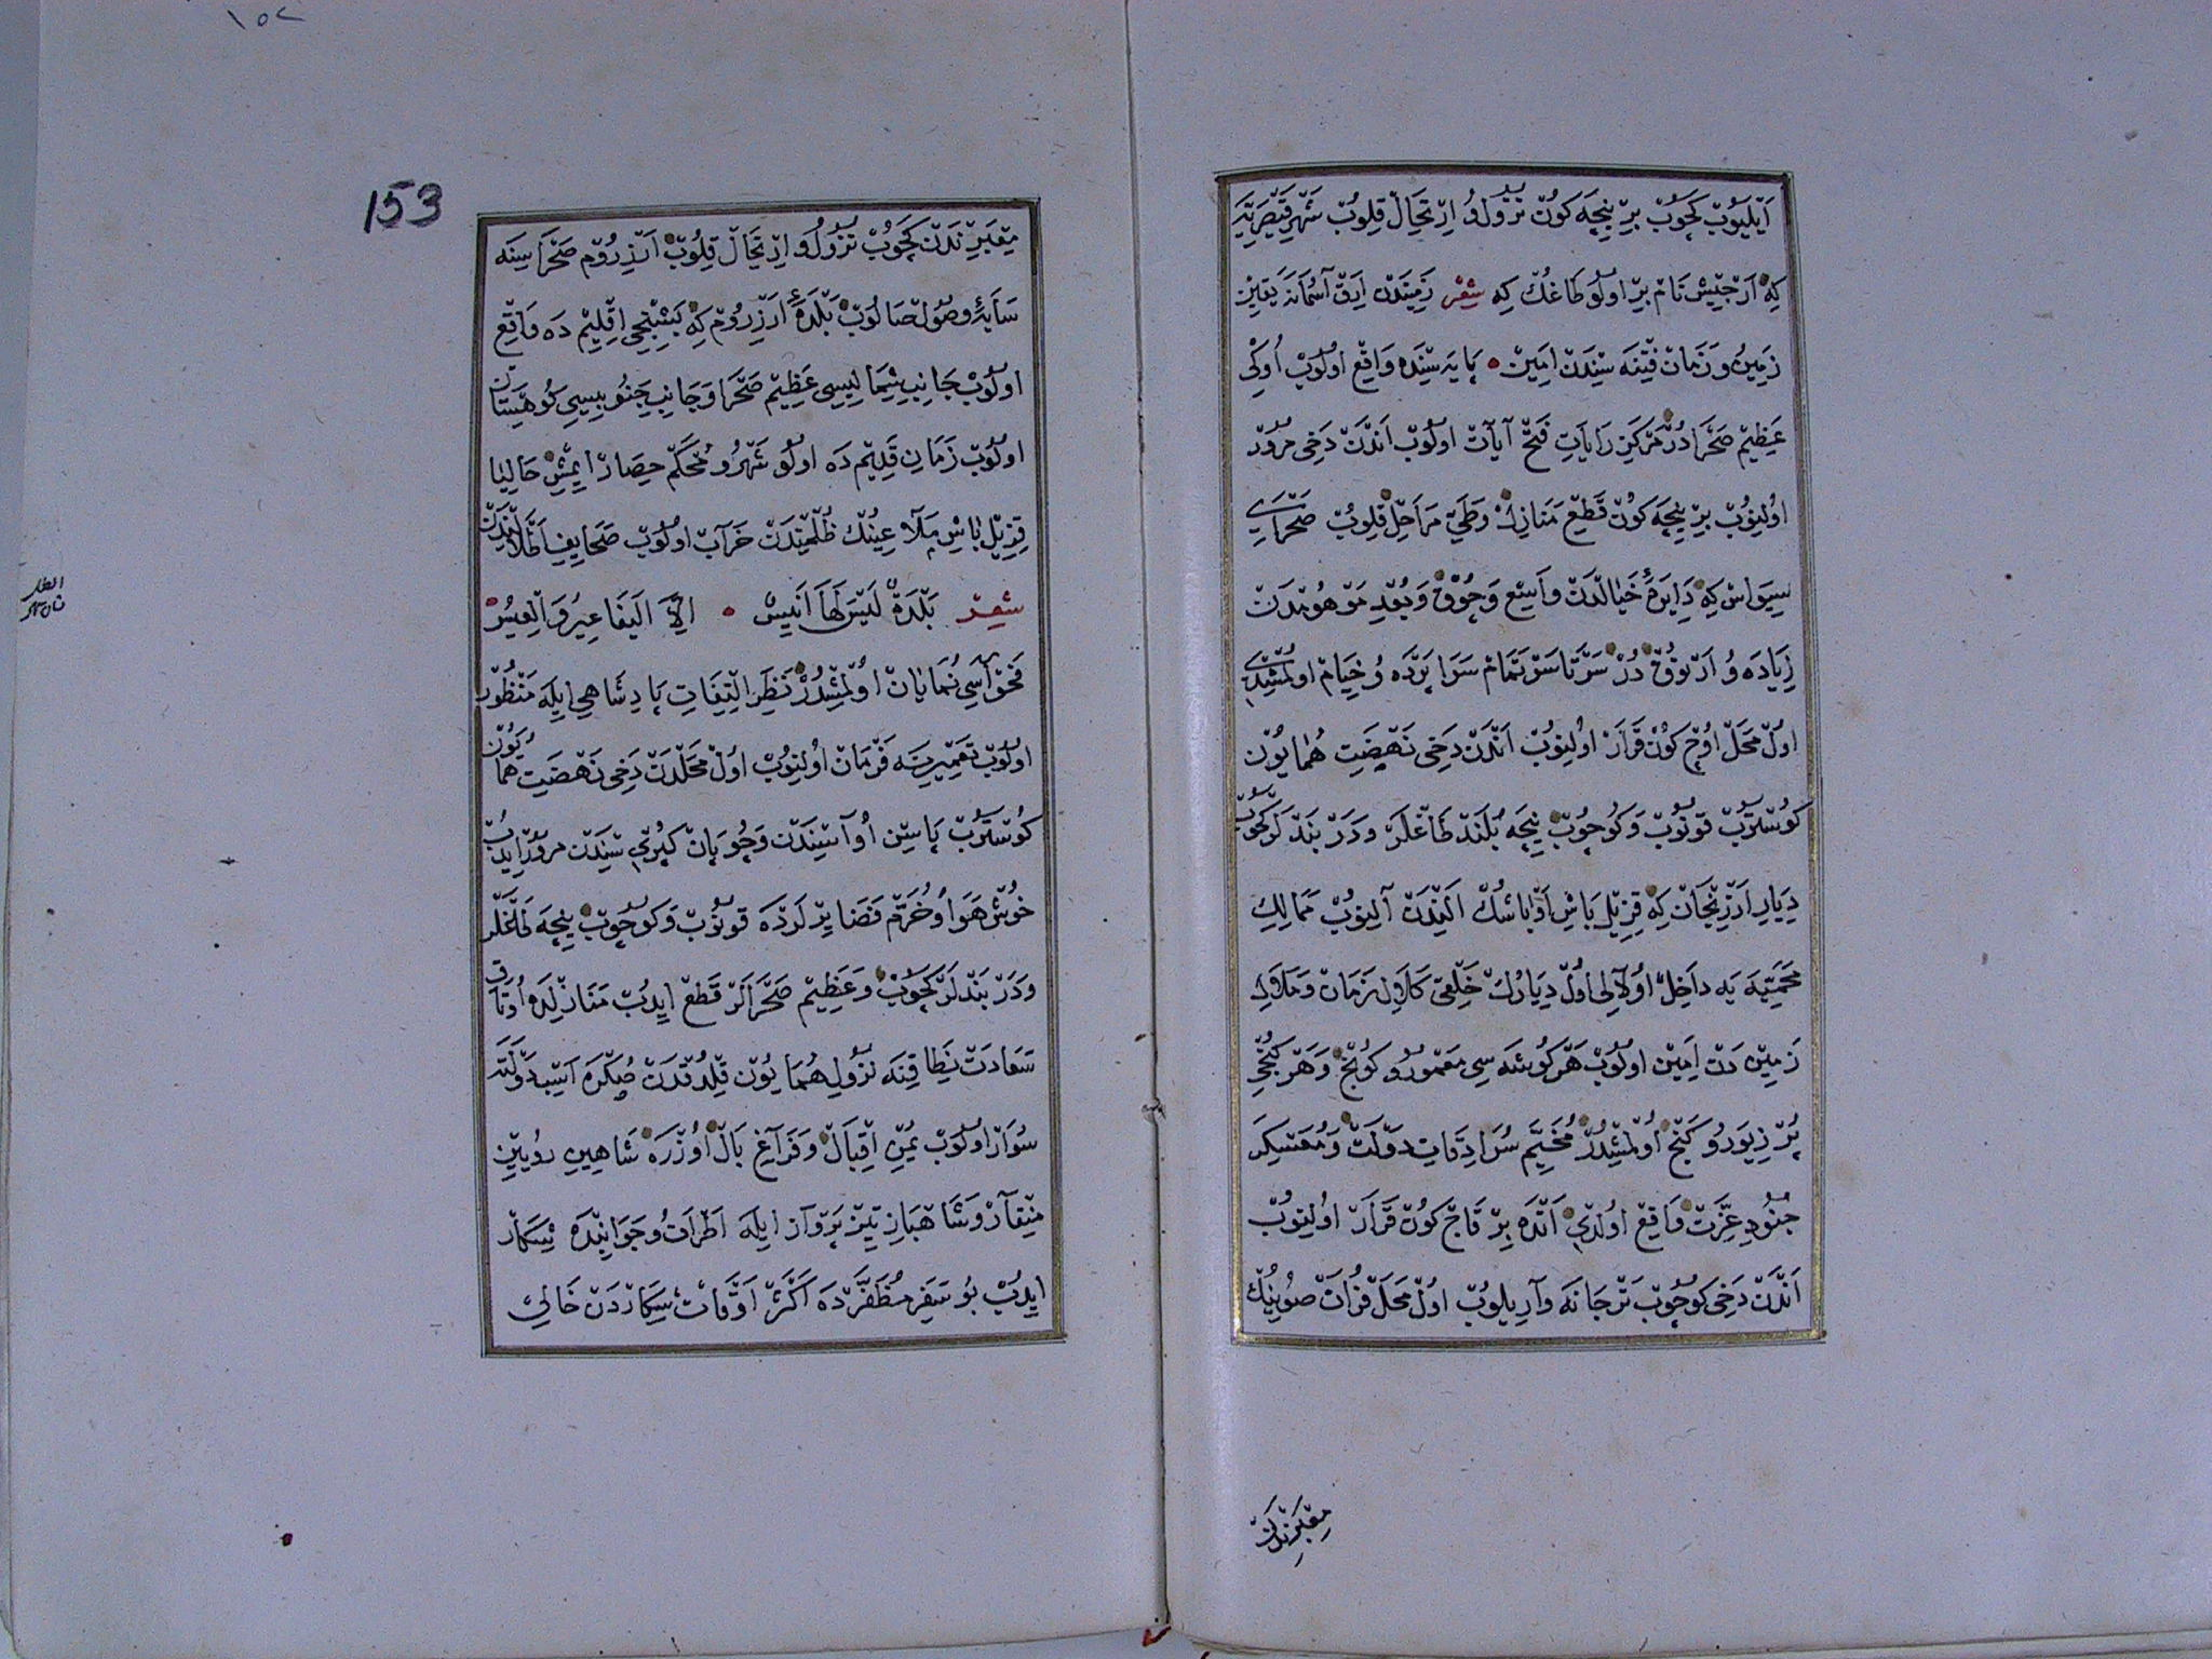 اَيْلَيُوبْ كَچُوبْ بِرْ نِيچَه كُونْ نُزُولُ و اِرْتِحَالْ قِلُوبْ شَهْرِ قَيْصَرِيَّه
كِه اَرْجِيشْ نَامْ بِرْ اُولُو طَاغُكْ كِه شِعْر زَمِينْدَنْ اِرَقْ آسُمَانَه يَقِينْ
زَمِينُ و زَمَانْ فِتْنَه سِنْدَنْ اَمِينْ پَايَه سِنْدَه وَاقِعْ اُولُوبْ اُوكِى
عَظِيمْ صَحْرَادُرْ مَرْكَزِ رَايَاتِ فَتْحْ آيَاتْ اُولُوبْ اَنْدَنْ دَخِى مُرُورْ
اُولِنُوبْ بِرْ نِيچَه كُونْ قَطْعِ مَنَازِلْ وَطَىِّ مَرَاحِلْ قِلُوبْ صَحْرَاىِ
سِيوَاسْ كِه دَايِرَۀ خَيَالْدَنْ وَاسِعْ وَچُوقْ وَبُعْدِ مَوْهُومْدَنْ
زِيَادَه وُ اَرْتُوقْدُرْ سَرْتَاسَرْ تَمَامْ سَرَاپَرْدَه وُ خِيَامْ اُولْمُشِدِى
اُولْ مَحَلْ اُوچْ كُونْ قَرَارْ اُولِنُوبْ اَنْدَنْ دَخِى نَهْضَتِ هُمَايُونْ
كُوسْتَرُوبْ قُونُوبْ وَكُوچُوبْ نِيچَه بُلَنْدْ طَاغْلَرْ وَدَرْبَنْدْلَرْ كَچُوبْ
دِيَارِ اَرْزِنْجَانْ كِه قِزِيلْ بَاشِ اَوْبَاشُكْ اَلِنْدَنْ آلِنُوبْ مَمَالِكِ
مَحْمِيَّه يَه دَاخِلْ اُولَالِى اُولْ دِيَارُكْ خَلْقِى كَالْاَوَّلْ زَمَانْ وَمَلَاوِلِ
زَمِينْ دَنْ اَمِينْ اُولُوبْ هَرْ كُوشَه سِى مَعْمُورُ و كُونْجْ وَهَرْ كُنْجِى
پُرْ زِيوَرُ و كَنْجْ اُولْمُشِدُرْ مُخَيَّمِ سُرَادِقَاتِ دَوْلَتْ وَمُعَسْكَرِ
جُنُودِ عِزَّتْ وَاقِعْ اُولْدِى اَنْدَه بِرْ قَاچْ كُونْ قَرَارْ اُولِنُوبْ
اَنْدَنْ دَخِى كُوچُوبْ تَرْجَانَه وَارِيلُوبْ اُولْ مَحَلْ فُرَاتْ صُويِنُكْ
مَعْبَرِنْدَنْ
١٥٢
153
مَعْبَرِنْدَنْ كَچُوبْ نُزُولُ و اِرْتِحَالْ قِلُوبْ اَرْزِرُومْ صَحْرَاسِنَه
سَايَۀ وُصُولْ صَالُوبْ بَلْدَۀ اَرْزِرُومْ كِه بَشِنْجِى اِقْلِيمْ دَه وَاقِعْ
اُولُوبْ جَانِبِ شِمَالِيسِى عَظِيمْ صَحْرَا وَجَانِبِ جَنُوبِيسِى كُوهِسْتَانْ
اُولُوبْ زَمَانِ قَدِيمْ دَه اُولُو شَهْرُ و مُحْكَمْ حِصَارْ ايمِشْ حَالِيَا
قِزِيلْ بَاشِ مَلَاعِينُكْ ظُلْمِنْدَنْ خَرَابْ اُولُوبْ صَحَايِفِ اَطْلَالِنْدَنْ
شِعْر بَلْدَةٌ لَيْسَ لَهَا اَنِيسُ اِلَّا الْيَعَافِيرُ وَ الْعِيسُ
فَحْوَاسِى نُمَايَانْ اُولْمُشِدُرْ نَظَرِ اِلْتِفَاتِ پَادِشَاهِى اِيلَه مَنْظُورْ
اُولُوبْ تَعْمِيرِنَه فَرْمَانْ اُولِنُوبْ اُولْ مَحَلْدَنْ دَخِى نَهْضَتِ هُمَايُونْ
كُوسْتَرُوبْ پَاسِينْ اُوَاسِنْدَنْ وَچُوبَانْ كُپْرِى سِنْدَنْ مُرُورْ ايدُبْ
خُوشْ هَوَا وُ خُرَّمْ فَضَا يِرْلَرْدَه قُونُوبْ وَكُوچُوبْ نِيچَه طَاغْلَرْ
وَدَرْبَنْدْلَرْ كَچُوبْ وَعَظِيمْ صَحْرَالَرْ قَطْعْ ايدُبْ مَنَازِلْدَه اُوتَاقِ
سَعَادَتْ نِطَاقِنَه نُزُولِ هُمَايُونْ قِلْدُقْدَنْ صُكْرَه اَسْبِ دَوْلَتَه
سُوَارْ اُولُوبْ يُمْنِ اِقْبَالْ وَفَرَاغِ بَالْ اُوزْرَه شَاهِينِ رُويِينْ
مِنْقَارْ وَشَاهْبَازِ تِيزْ پَرْوَازْ اِيلَه اَطْرَافُ و جَوَانِبْدَه شِكَارْ
ايدُبْ بُو سَفَرِ مُظَفَّرْدَه اَكْثَرْ اَوْقَاتْ شِكَارْدَنْ خَالِى